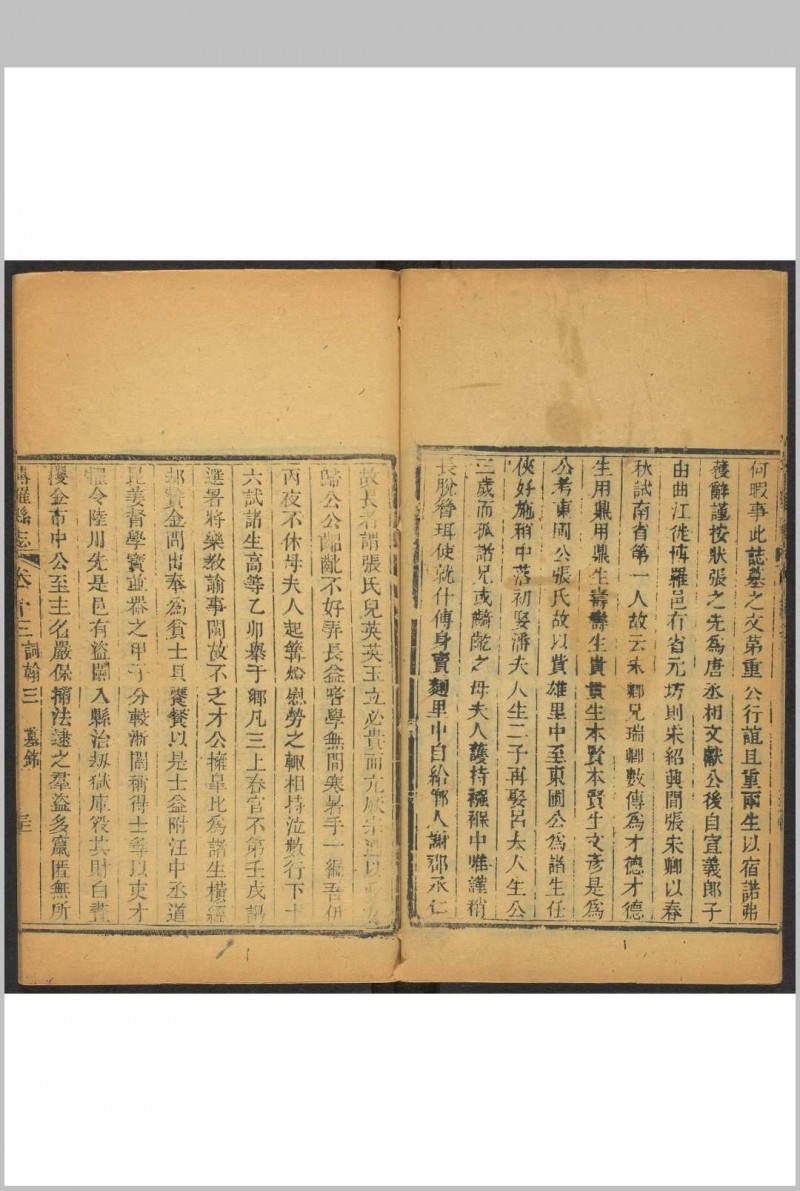 何暇事此誌墓之文第重公行誼且重兩生以宿諾弗
獲辭謹按狀張之先爲唐丞相文獻公後自宣義郎子
由曲江徙博羅邑有省元坊則宋紹興間張宋卿以春
秋試南省第一人故云宋卿兄瑞卿數傳爲才德才德
生用鼎用鼎生壽壽生貴貴生本賢本賢生文彥是爲
公考東園公張氏故以貲雄里中至東園公爲諸生任
俠好施稍中落初娶潘夫人生二子再娶呂夫人生公
三歲而孤諸兄或齮齕之母夫人護持襁褓中唯謹稍
長脫簪珥使就什傳身賣麵里中自給鄉人謝郡丞仁
故長者謂張氏兒英英玉立必貴而亢厥宗遂以
歸公公齠齔不好弄長益嗜學無間寒暑手一編吾伊
丙夜不休母夫人起篝燈慰勞之輒相持泣數行下十
六試諸生高等乙卯舉于鄉凡三上春官不第壬戌謁
選署將樂教諭事閩故不乏才公擁皐比爲諸生橫經
却贄金間出奉爲貧士具饔餐以是士益附汪中丞道
昆姜督學寶並器之甲子分較浙闈稱得士等以吏才
擢令陸川先是邑有盜闌入縣治刼獄庫役其財白晝
攫金市中公至主名嚴保捕法逮之羣盜多竄匿無所
博羅縣志 卷十三 詞翰三 墓銘 三